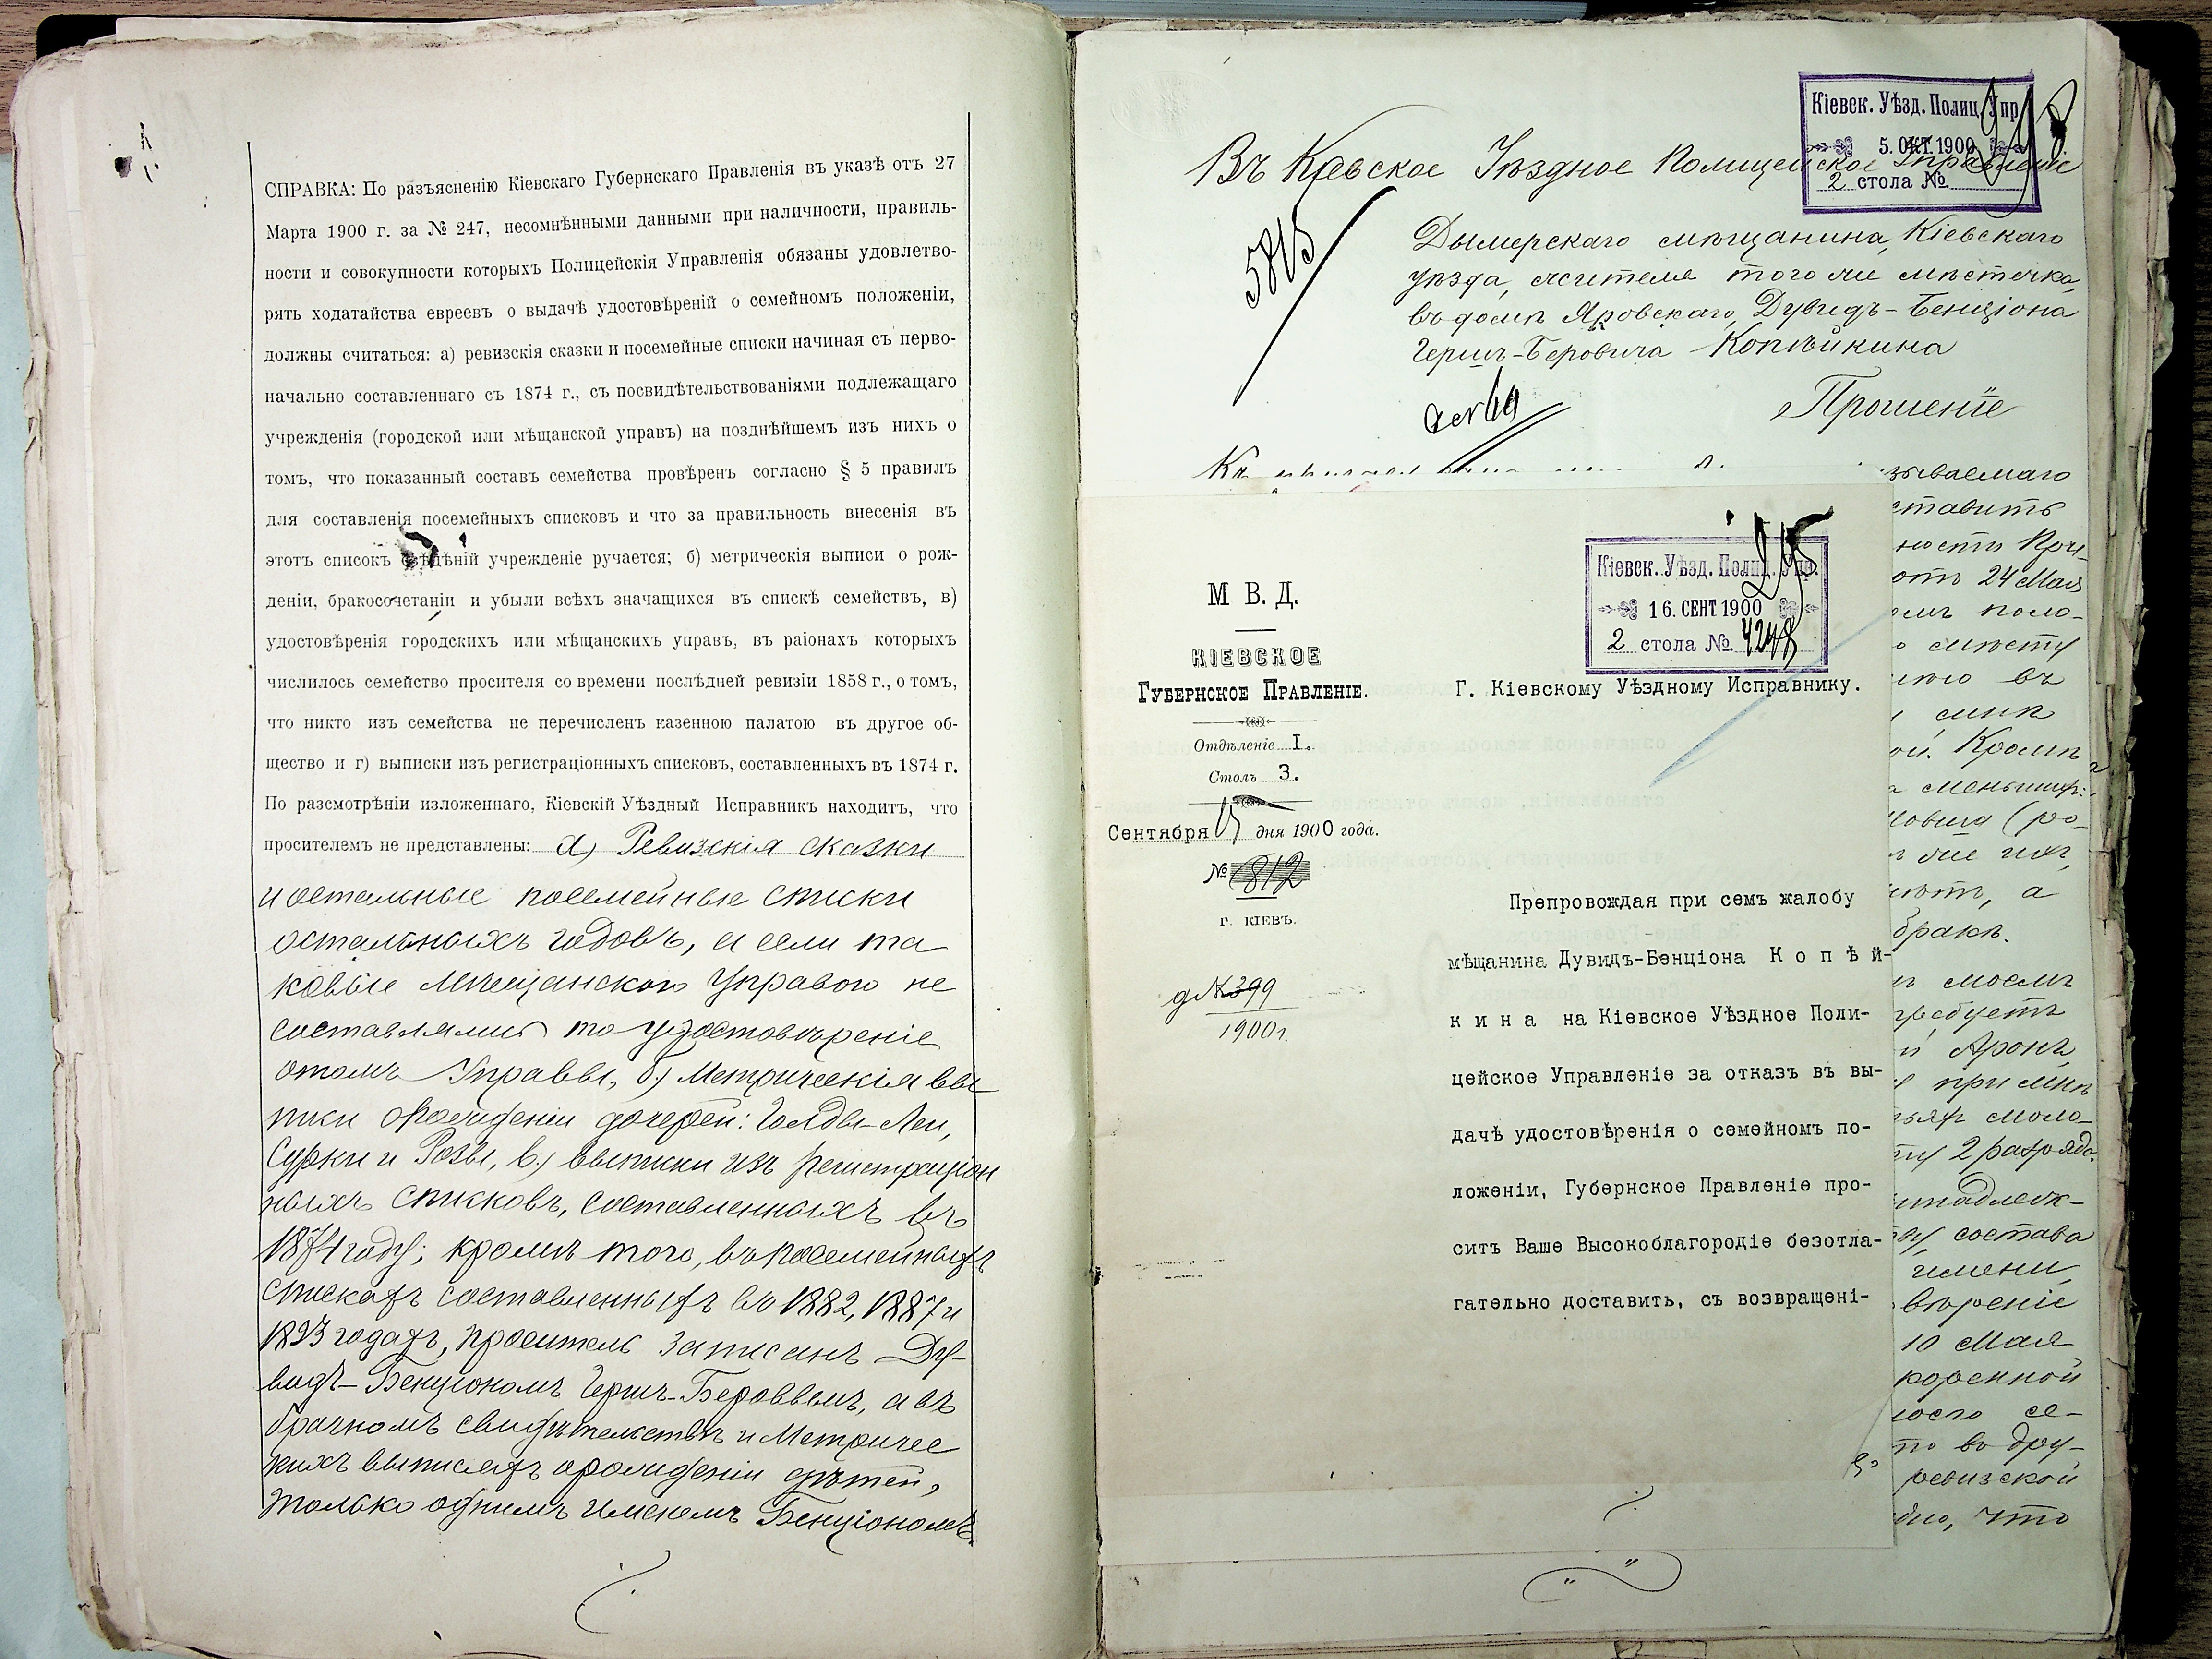 СПРАВКА: По разъясненію Кіевскаго Губернскаго Правленія въ указѣ отъ 27
Марта 1900 г. за № 247, несомнѣнными данными при наличности, правиль-
ности и совокупности которыхъ Полицейскія Управленія обязаны удовлетво-
рять ходатайства евреевъ о выдачѣ удостовѣреній о семейномъ положеніи,
должны считаться: а) ревизскія сказки и посемейные списки начиная съ перво-
начально составленнаго съ 1874 г., съ посвидѣтельствованіями подлежащаго
учрежденія (городской или мѣщанской управъ) на позднѣйшемъ изъ нихъ о
томъ, что показанный составъ семейства провѣренъ согласно § 5 правилъ
для составленія посемейныхъ списковъ и что за правильность внесенія въ
этотъ списокъ свѣдѣній учрежденіе ручается; б) метрическія выписи о рож-
деніи, бракосочетаніи и убыли всѣхъ значащихся въ спискѣ семействъ, в)
удостовѣренія городскихъ или мѣщанскихъ управъ, въ раіонахъ которыхъ
числилось семейство просителя со времени послѣдней ревизіи 1858 г., о томъ,
что никто изъ семейства не перечисленъ казенною палатою въ другое об-
щество и г) выписки изъ регистраціонныхъ списковъ, составленныхъ въ 1874 г.
По разсмотрѣніи изложеннаго, Кіевскій Уѣздный Исправникъ находитъ, что
просителемъ не представлены: а) Ревизскія сказки
и остальные посемейные списки
остальныхъ годовъ, а если та
ковые Мѣщанскою Управою не
составлялись то удостовѣреніе
отомъ Управы, б) Метрическія вы
писки орожденіи дочерей: Голды-Леи,
Сурки и Розы, в) выписки изъ регистрацион
ныхъ списковъ, составленныхъ въ
1874 году; кромѣ того, въ посемейныхъ
спискахъ составленныхъ въ 1882, 1887 и
1893 годахъ, проситель записанъ Ду-
видъ-Бенціономъ Герш-Беровымъ, а въ
брачномъ свидѣтельствѣ и Метричес
кихъ выписяхъ орожденіи дѣтей,
только однимъ именемъ Бенціономъ.
Кіевск. Уѣзд. Полиц. Упр.
5. ОКТ. 1900
2 стола №
Въ Кіевское Уѣздное Полицейское Управленіе
5815
Дымерскаго мѣщанина, Кіевскаго
уѣзда, жителя того же мѣстечка,
въ домѣ Яровскаго, Дувидъ-Бенціона
Гершъ-Беровича Копѣйкина
Прошеніе
зываемаго
ставить
ности
отъ 24 Мая
поло-
мѣсту
въ
мнѣ
ой. Кромѣ
(ро-
а
бракѣ.
моемъ
требуетъ
Аронъ,
при мнѣ
моло-
2 разряда.
надлеж-
состава
имени,
вѣреніе
10 Мая
коренной
моего се-
во дру-
ревизской
что
Кіевск. Уѣзд. Полиц. Упр.
16. СЕНТ 1900
2 стола № 4248
М. В. Д.
КІЕВСКОЕ
ГУБЕРНСКОЕ ПРАВЛЕНІЕ.
Отдѣленіе I.
Столъ 3.
Сентября 15 дня 1900 года.
№ 1812
Г. КІЕВЪ.
д №399
1900 г.
Г. Кіевскому Уѣздному Исправнику.
Препровождая при семъ жалобу
мѣщанина Дувидъ-Бенціона К о п ѣ й-
к и н а на Кіевское Уѣздное Поли-
цейское Управленіе за отказъ въ вы-
дачѣ удостовѣренія о семейномъ по-
ложеніи, Губернское Правленіе про-
ситъ Ваше Высокоблагородіе безотла-
гательно доставить, съ возвращені-